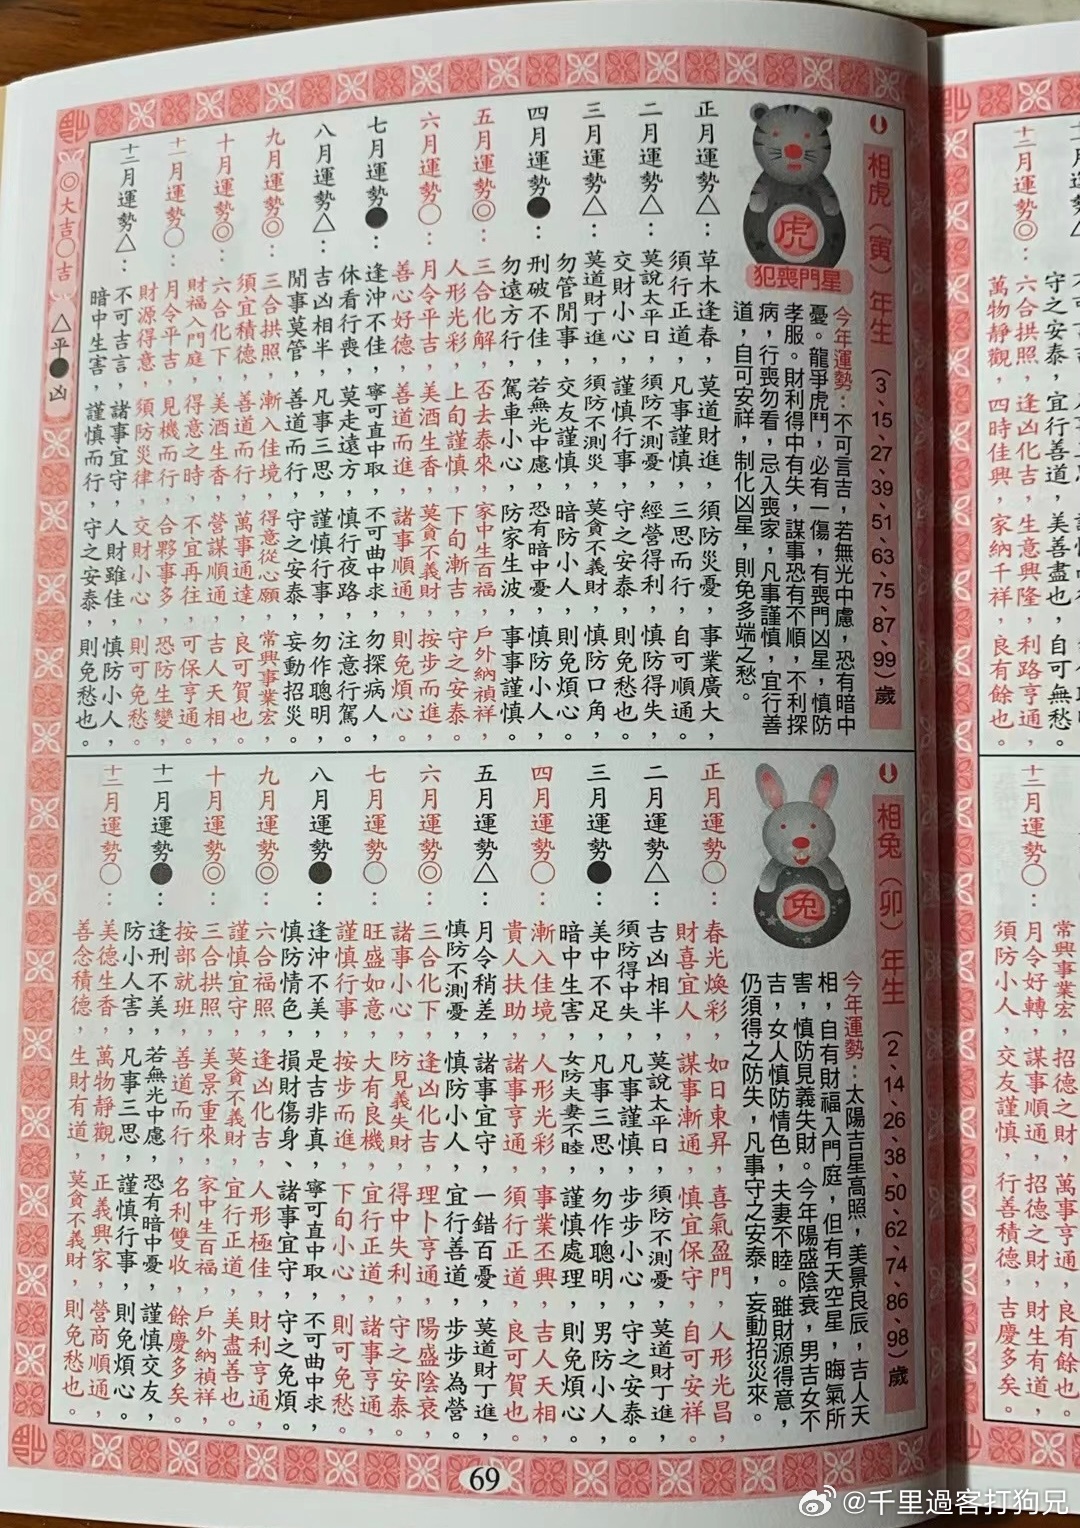 相虎（寅）年生（3、15、27、39、51、63、75、87、99）歲
虎
犯喪門星
今年運勢：不可言吉，若無光中慮，恐有暗中
憂。龍爭虎鬥，必有一傷，有喪門凶星，慎防
孝服。財利得中有失，謀事恐有不順，不利探
病，行喪勿看，忌入喪家，凡事謹慎，宜行善
道，自可安祥，制化凶星，則免多端之愁。
正月運勢△：草木逢春，莫道財進，須防災憂，事業廣大，
須行正道，凡事謹慎，三思而行，自可順通。
二月運勢△：莫說太平日，須防不測憂，經營得利，慎防得失，
交財小心，謹慎行事，守之安泰，則免愁也。
三月運勢△：莫道財丁進，須防不測災，莫貪不義財，慎防口角，
勿管閒事，交友謹慎，暗防小人，則免煩心。
四月運勢●：刑破不佳，若無光中慮，恐有暗中憂，慎防小人，
勿遠方行，駕車小心，防家生波，事事謹慎。
五月運勢◎：三合化解，否去泰來，家中生百福，戶外納禎祥，
人形光彩，上旬謹慎，下旬漸吉，守之安泰。
六月運勢○：月令平吉，美酒生香，莫貪不義財，按步而進，
善心好德，善道而進，諸事順通，則免煩心。
七月運勢●：逢沖不佳，寧可直中取，不可曲中求，勿探病人，
休看行喪，莫走遠方，慎行夜路，注意行駕。
八月運勢△：吉凶相半，凡事三思，謹慎行事，勿作聰明，
閒事莫管，善道而行，守之安泰，妄動招災。
九月運勢◎：三合拱照，漸入佳境，得意從心願，常興事業宏，
須宜積德，善道而行，萬事通達，良可賀也。
十月運勢◎：六合化下，美酒生香，營謀順通，吉人天相，
財福入門庭，得意之時，不宜再往，可保亨通。
十一月運勢○：月令平吉，見機而行，合夥事多，恐防生變，
財源得意，須防災律，交財小心，則可免愁。
十二月運勢△：不可吉言，諸事宜守，人財雖佳，慎防小人，
暗中生害，謹慎而行，守之安泰，則免愁也。
◎大吉○吉 △平●凶
相兔（卯）年生（2、14、26、38、50、62、74、86、98）歲
兔
今年運勢：太陽吉星高照，美景良辰，吉人天
相，自有財福入門庭，但有天空星，晦氣所
害，慎防見義失財。今年陽盛陰衰，男吉女不
吉，女人慎防情色，夫妻不睦。雖財源得意，
仍須得之防失，凡事守之安泰，妄動招災來。
正月運勢○：春光煥彩，如日東昇，喜氣盈門，人形光昌，
財喜宜人，謀事漸通，慎宜保守，自可安祥。
二月運勢△：吉凶相半，莫說太平日，須防不測憂，莫道財丁進，
須防得失，凡事謹慎，步步小心，守之安泰。
三月運勢●：美中不足，凡事三思，勿作聰明，男防小人，
暗中生害，女防夫妻不睦，謹慎處理，則免煩心。
四月運勢○：漸入佳境，人形光彩，事業丕興，吉人天相，
貴人扶助，諸事亨通，須行正道，良可賀也。
五月運勢△：月令稍差，諸事宜守，一錯百憂，莫道財丁進，
慎防不測憂，慎防小人，宜行善道，步步為營。
六月運勢◎：三合化下，逢凶化吉，理卜亨通，陽盛陰衰，
諸事小心，防見義失財，得中失利，守之安泰。
七月運勢○：旺盛如意，大有良機，宜行正道，諸事亨通，
謹慎行事，按步而進，下旬小心，則可免愁。
八月運勢●：逢沖不美，是吉非真，寧可直中取，不可曲中求，
慎防情色，損財傷身、諸事宜守，守之免煩。
九月運勢◎：六合福照，逢凶化吉，人形極佳，財利亨通，
謹慎宜守，莫貪不義財，宜行正道，美盡善也。
十月運勢◎：三合拱照，美景重來，家中生百福，戶外納禎祥，
按部就班，善道而行，名利雙收，餘慶多矣。
十一月運勢●：逢刑不美，若無光中慮，恐有暗中憂，謹慎交友，
防小人害，凡事三思，謹慎行事，則免煩心。
十二月運勢○：美德生香，萬物靜觀，正義興家，營商順通，
善念積德，生財有道，莫貪不義財，則免愁也。
69
守之安泰，宜行善道，美善盡也，自可無愁。
十二月運勢◎：六合拱照，逢凶化吉，生意興隆，利路亨通，
萬物靜觀，四時佳興，家納千祥，良有餘也。
常興事業宏，招德之財，萬事亨通，良有餘也。
十二月運勢○：月令好轉，謀事順通，招德之財，財生有道，
須防小人，交友謹慎，行善積德，吉慶多矣。
@千里過客打狗兄